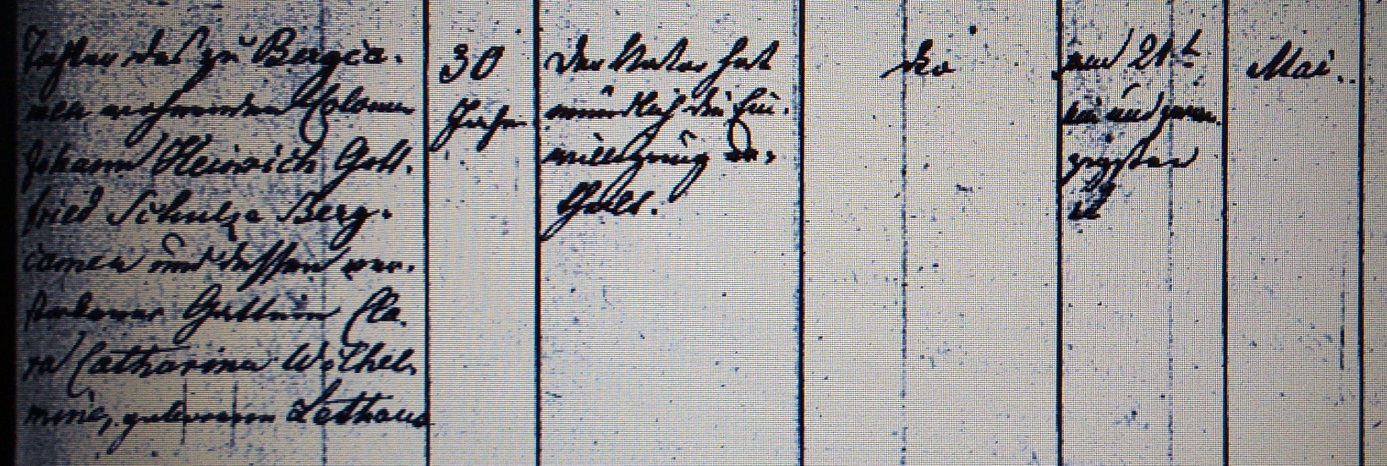 Tochter des zu Bergca-
men wohnenden Colonen
Johann Heinrich Gott-
fried Schulze Berg-
camen und dessen ver-
storbener Gattin Cla-
ra Catharina Wilhel-
mine, geborenen Lethaus
30
Jahr
Der Vater hat
mündlich die Ein-
willigung er-
theilt.
am 21t
ein und zwan-
zigsten
Mai.